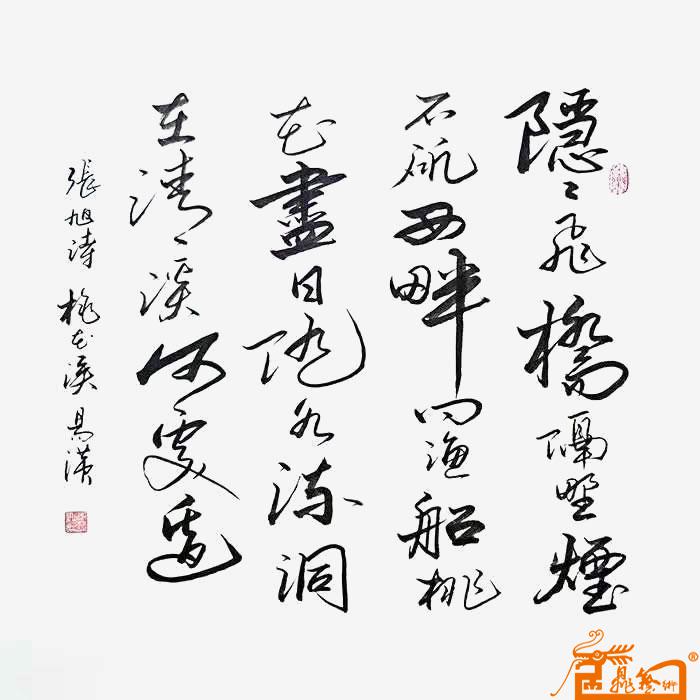 隱〻飛橋隔野煙
石磯西畔问渔船桃
花盡日随水流洞
在清〻溪何處邊
張旭詩 桃花溪